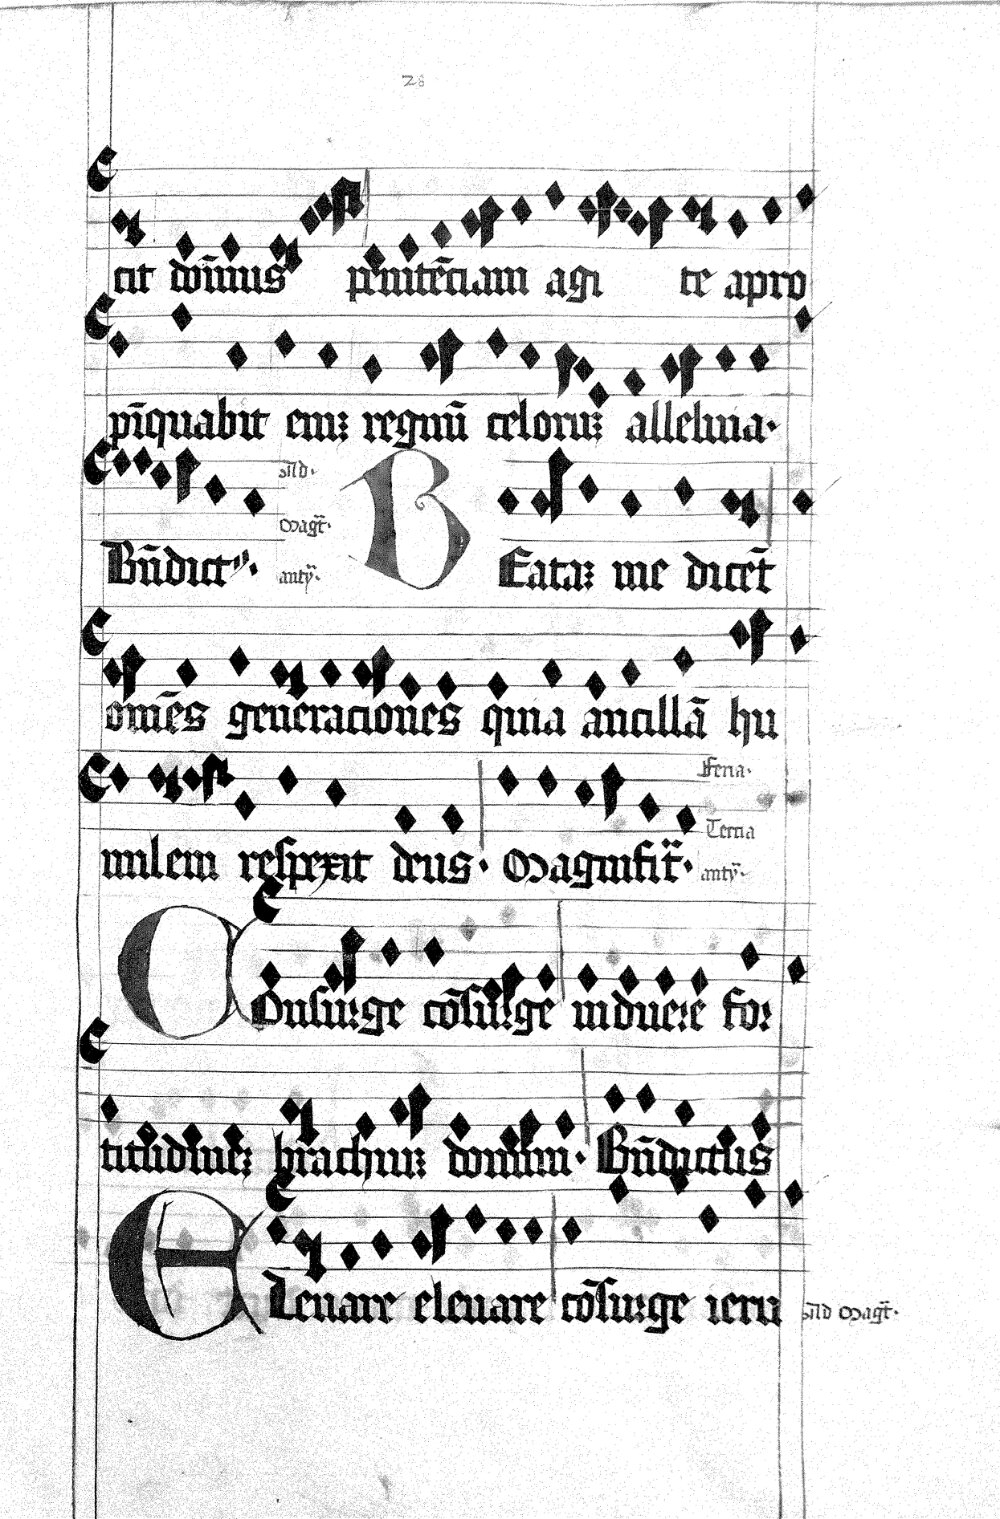 28
cit dom̄inus penitēciam agi te apro
pīquabit emꝫ regnū celoruꝫ alleluia·
Bn̄dict⁹· Ad· Magt̄· anty̅·
BEataꝫ me dicēt
om̄es generaciones quia ancillā hu
milem respexit deus· Magnifit̄· Feria· Tercia anty̅·
COnsurge cōsurge induere for
titudineꝫ brachiuꝫ domini· Bn̄dictus
ELeuare eleuare cōsurge ieru Ad Magt̄·